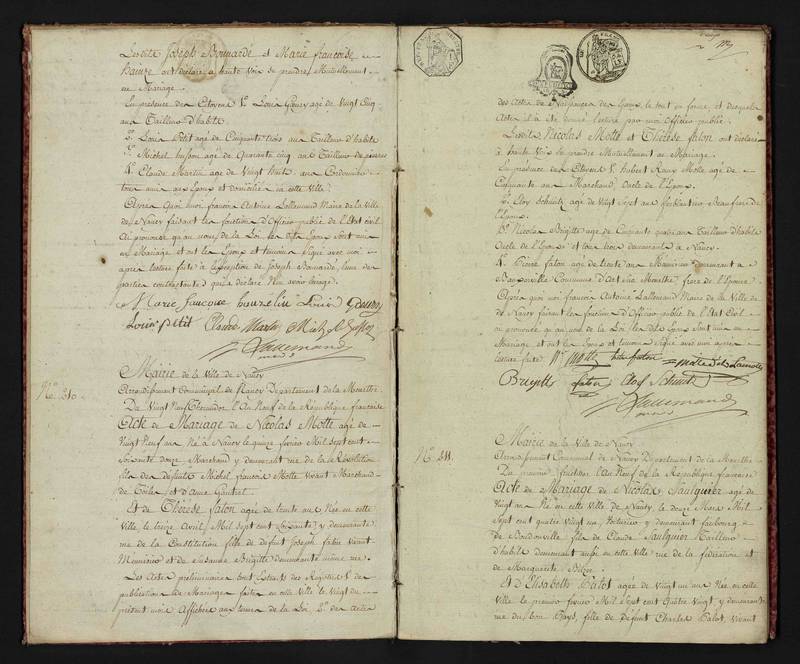 Lesdits Joseph Bonnarde et Marie françoise
ont déclaré à haute Voix se prendre Mutuellement
en Mariage.
En présence des Citoyens 1o Louis Gouvy agé de Vingt Cinq
ans Tailleur d'habits
2o Louis Petit agé de Cinquante trois ans Tailleur d'habits
3o Michel husson agé de Quarante Cinq ans Tailleur de pierres
4o Claude Martin age de Vingt huit ans Cordonnier
tous amis des Epoux et domiciliés en cette Ville.
Après Quoi moi françois Antoine Lallemand Maire de la Ville
de Nancy faisant les fonctions d'Officier public de l'Etat civil
Ai prononcé qu'au nom de la Loi les dits Epoux sont unis
en Mariage et ont les Epoux et temoins Signé avec moi
après lecture faite à l'exception de Joseph Bonnarde l'une des
parties contractantes qui a déclaré N'en avoir l'usage.
Marie francoise Louis Gouvy
Louis petit Claude Martin
Lallemand
No. 210.
Mairie de la Ville de Nancy
Arrondissement Communal de Nancy Département de la Meurthe.
Du Vingt Neuf Thermidor l'An Neuf de la République française
Acte de Mariage de Nicolas Motte agé de
Vingt Neuf ans Né à Nancy le quinze février Mil sept cent
Soixante douze Marchand y demeurant rue de la Révolution
fils des défunts Michel françois Motte vivant Marchand
de Toiles et d'Anne Gautret.
Et de Thérèse faton agée de trente ans Née en cette
Ville le treize Avril Mil sept cent soixante y demeurante
rue de la Constitution fille de défunt Joseph faton vivant
Menuisier et de Susanne Brigitte demeurante même rue.
Les Actes préliminaires sont Extraits des Registres 1o des
publications de Mariage faites en cette Ville le Vingt du
présent mois Affichées aux termes de la Loi. 2o des Actes
des Actes de Naissances des Epoux le tout en forme, et desquels
Actes il a été donné lecture par moi Officier public.
Lesdits Nicolas Motte et Thérèse faton ont déclaré
à haute Voix se prendre Mutuellement en Mariage.
En présence des Citoyens 1o hubert Motte agé de
Cinquante ans Marchand, Oncle de l'Epoux.
2o Eloy Schmitz agé de Vingt Sept ans Beaufrere de
l'Epoux.
3o Nicolas Brigitte agé de Cinquante quatre ans Tailleur d'habits
Oncle de l'Epouse et tous trois demeurants à Nancy.
4o Pierre faton agé de trente ans Menuisier demeurant à
Commune d'Art sur Meurthe, frere de l'Epouse
Après quoi moi françois Antoine Lallemand Maire de la Ville de
de Nancy faisant les fonctions d'Officier public de l'Etat Civil
ai prononcé qu'au nom de la Loi les dits Epoux sont unis en
Mariage et ont les Epoux et temoins signé avec moi après
lecture faite. Motte faton
Brigitte faton Eloy Schmitz
Lallemand
No. 211.
Mairie de la Ville de Nancy
Arrondissement Communal de Nancy Département de la Meurthe.
Du premier fructidor l'An Neuf de la République française
Acte de Mariage de Nicolas Saulquier agé de
Vingt ans Né en cette Ville de Nancy, le douze Mars Mil
Sept cent quatre Vingt un, y demeurant faubourg
de Boudonville fils de Claude Saulquier Tailleur
d'habits demeurant aussi en cette Ville rue de la fédération et
de Marguerite
Et d'Elisabethe Palot agée de Vingt un ans Née en cette
Ville le premier février Mil Sept cent Quatre Vingt, y demeurante
rue du bon Pays, fille de défunt Charles Palot, vivant